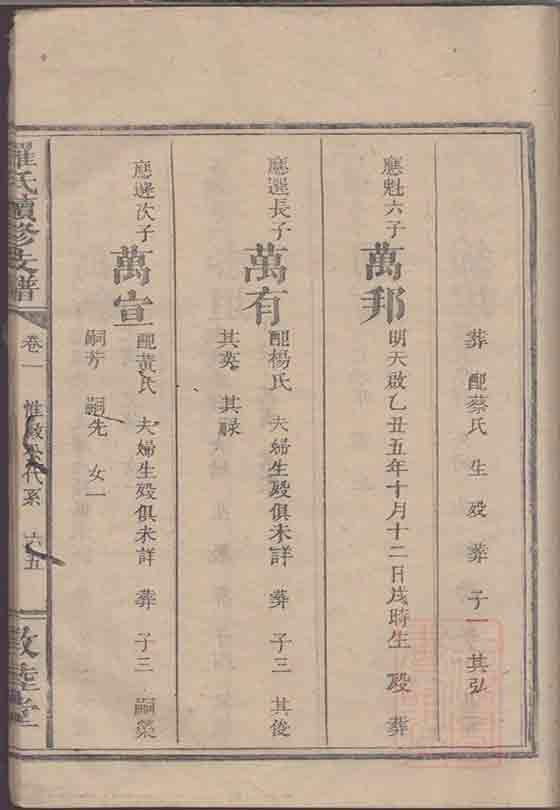 葬 配蔡氏 生 殁 葬 子一 其弘
應魁六子
萬邦
明天啟乙丑五年十月十二日戌時生 殁 葬
應選長子
萬有
配楊氏 夫婦生殁俱未詳 葬 子三 其俊
其英 其祿
應選次子
萬宣
配黃氏 夫婦生殁俱未詳 葬 子三 嗣榮
嗣芳 嗣先 女一
羅氏續修支譜
卷一
惟 公代系
六五
敦睦堂